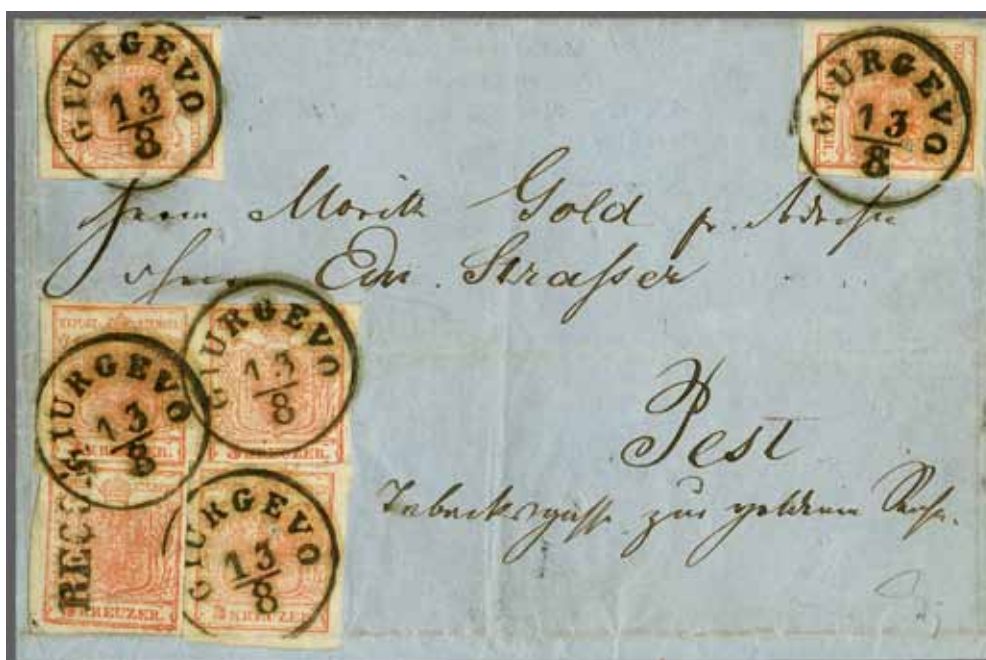 GIURGEVO
13
8
GIURGEVO
13
8
Herrn Moritz Gold pr. Adresse
Herrn Em. Strasser
GIURGEVO
13
8
GIURGEVO
13
8
KREUZER.
3 KREUZER.
Pest
zur goldenen
RECO
GIURGEVO
13
8
3 KREUZER.
3 KREUZER.